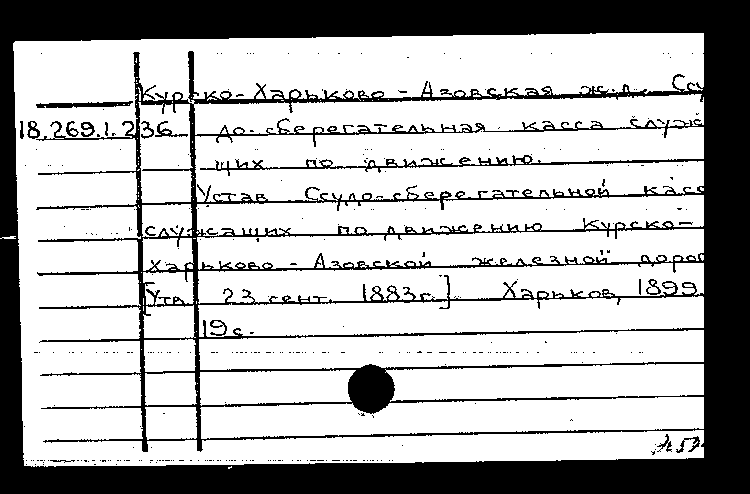 Курско-Харьково-Азовская ж.д. Ссу
18.269.1.236 до-сберегательная касса служ
щих по движению.
Устав Ссудо-сберегательной касс
служащих по движению Курско-
Харьково-Азовской железной дорог
[Утв. 23 сент. 1883г.] Харьков, 1899.
19с.